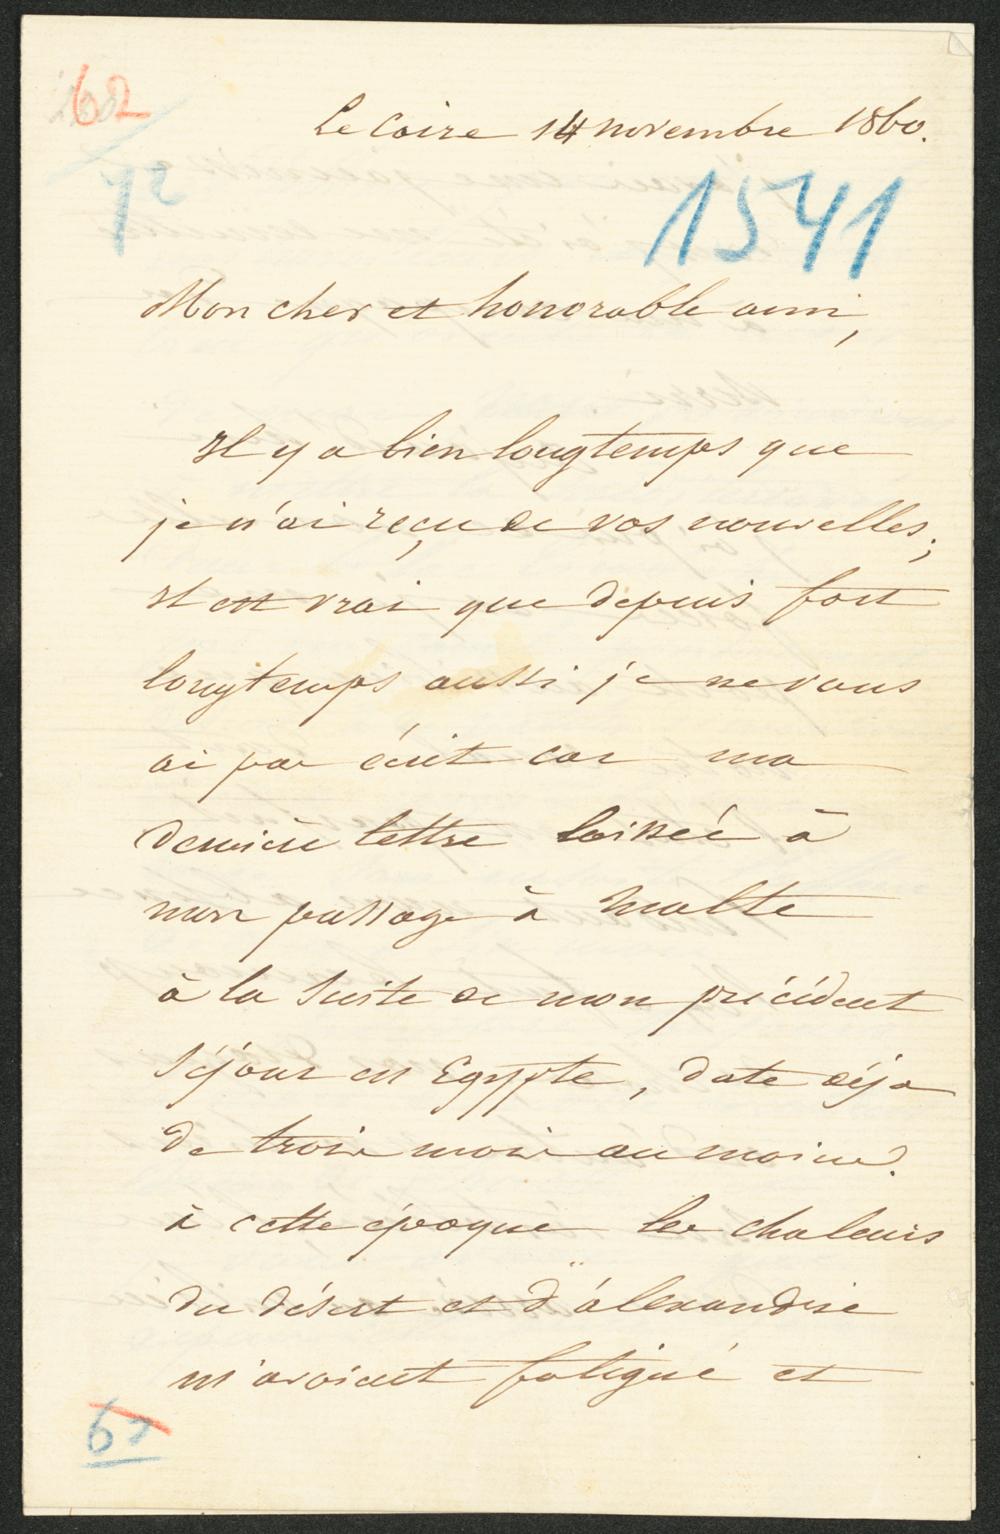 62
Le Caire 14 novembre 1860.
1541
Mon cher et honorable ami,
Il y a bien longtemps que
je n'ai reçu de vos nouvelles;
il est vrai que depuis fort
longtemps aussi je ne vous
ai pas écrit car ma
dernière lettre laissée à
mon passage à Malte
à la suite de mon précédent
séjour en Egypte, date déja
de trois mois au moins.
à cette époque les chaleurs
du désert et d'alexandrie
m'avaient fatigué et